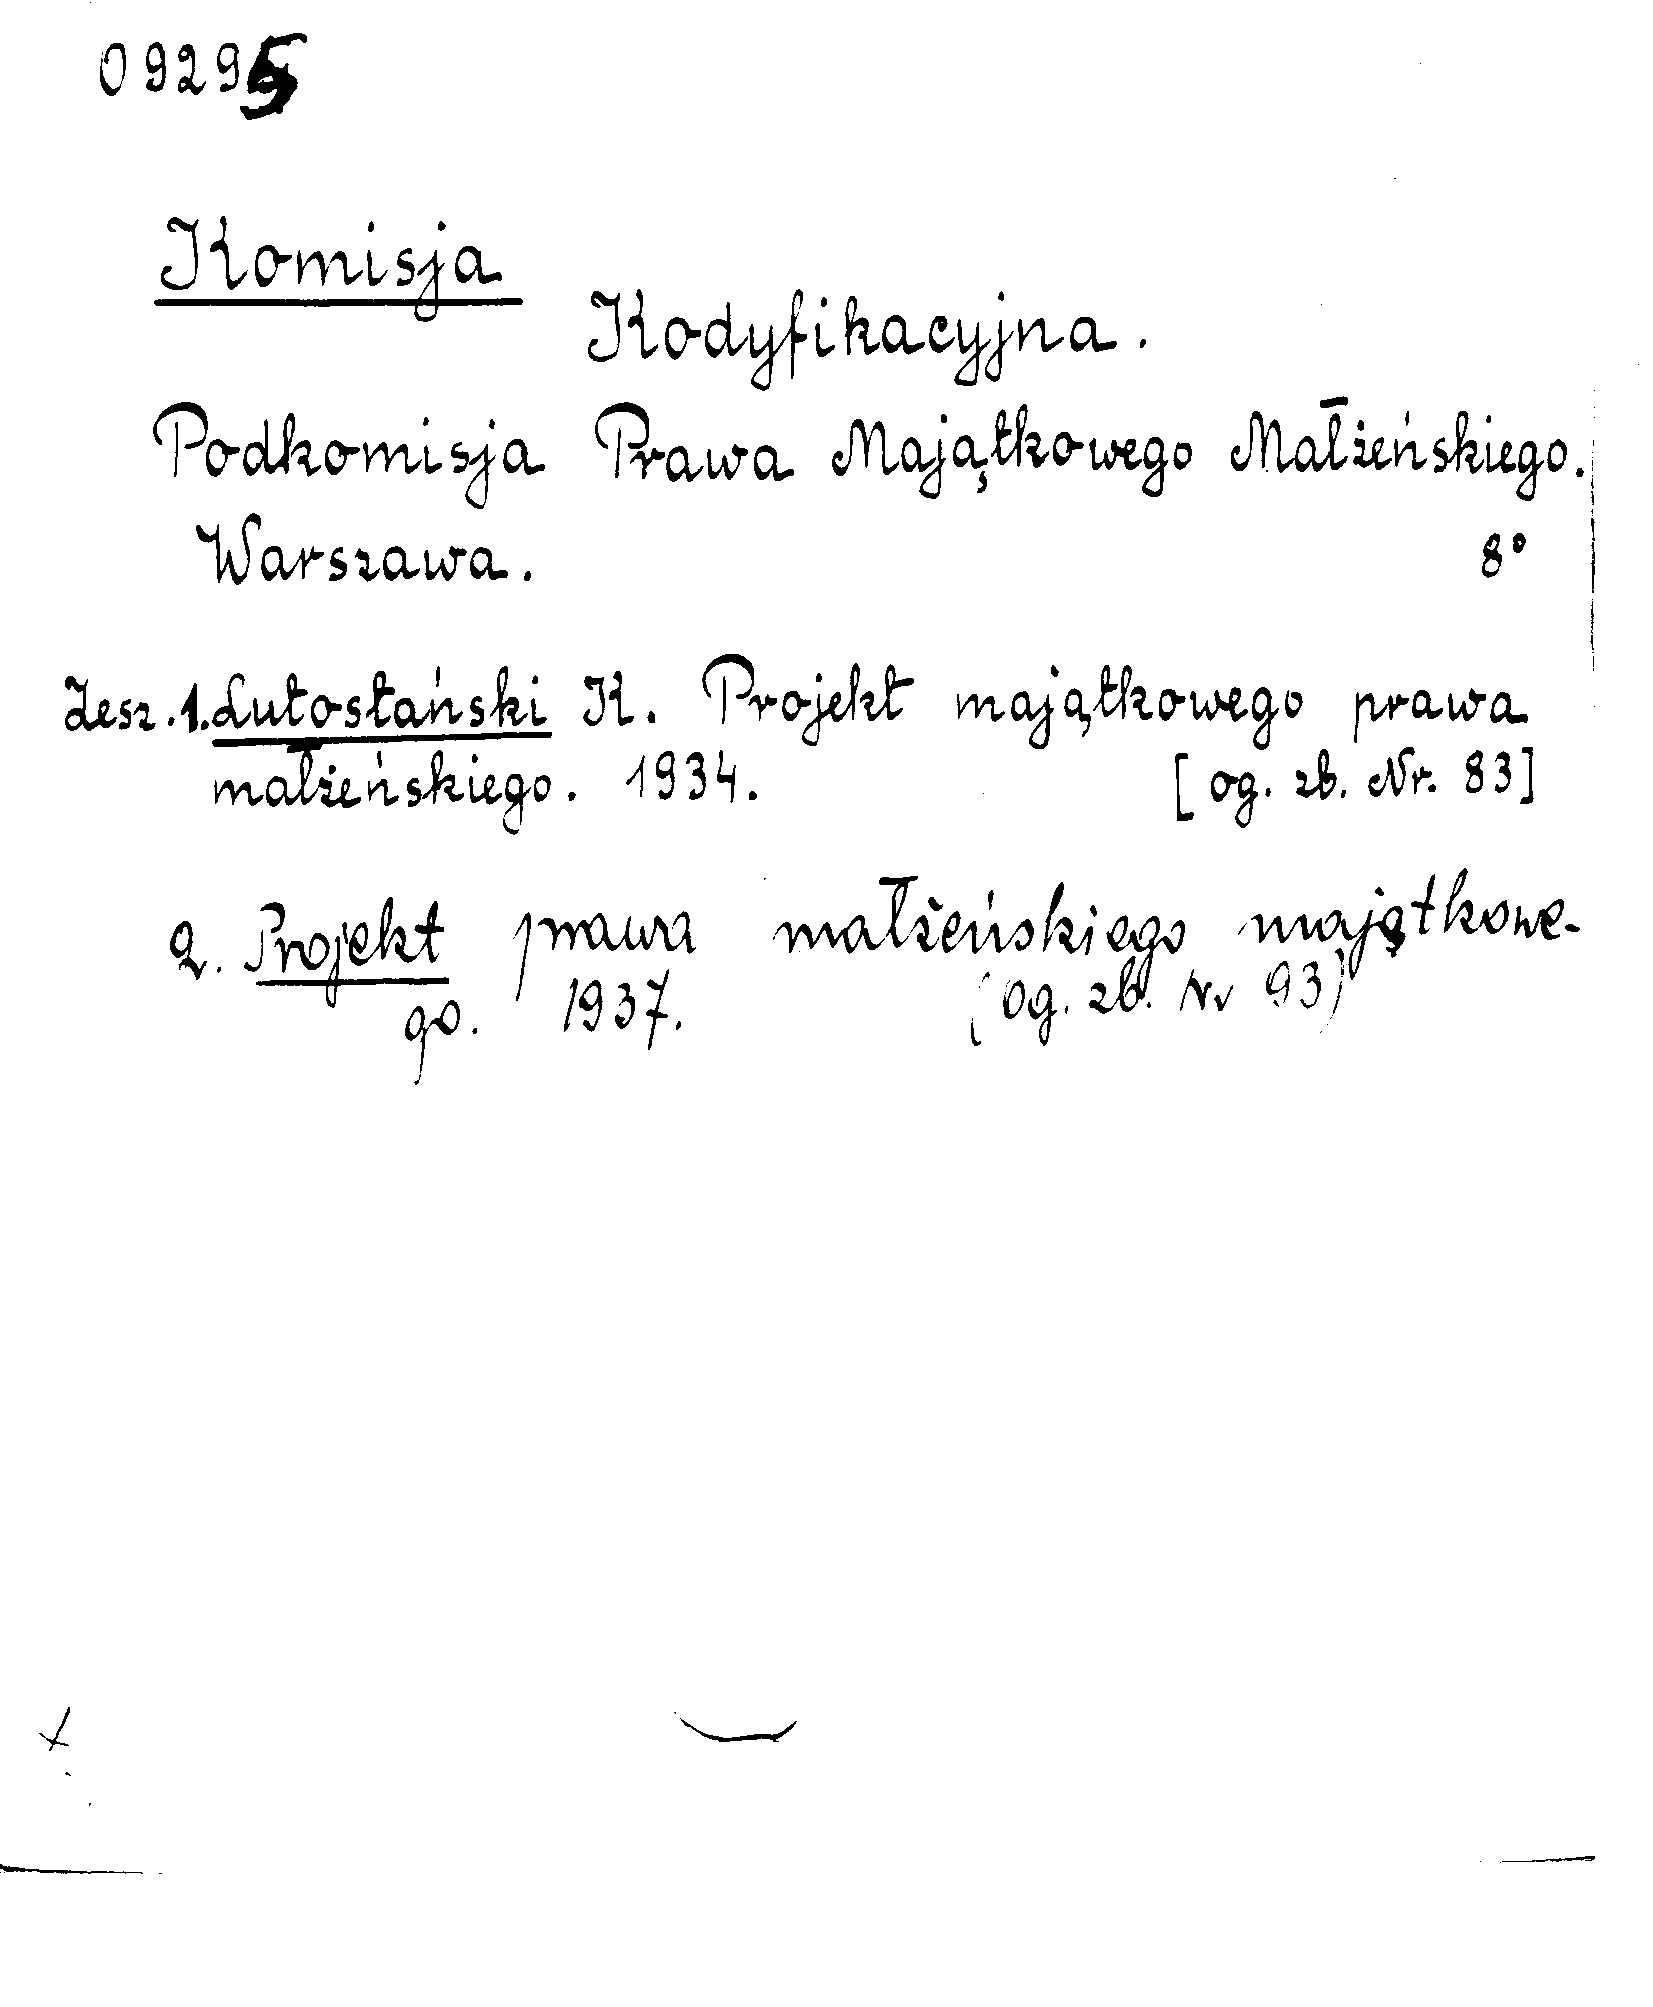 09295
Komisja
Kodyfikacyjna.
Podkomisja Prawa Majątkowego Małżeńskiego.
Warszawa. 8°
Zesz. 1. Lutostański K. Projekt majątkowego prawa
małżeńskiego. 1934. [og. zb. Nr. 83]
2. Projekt prawa małżeńskiego majątkowe-
go. 1937. (og. zb. Nr 93)